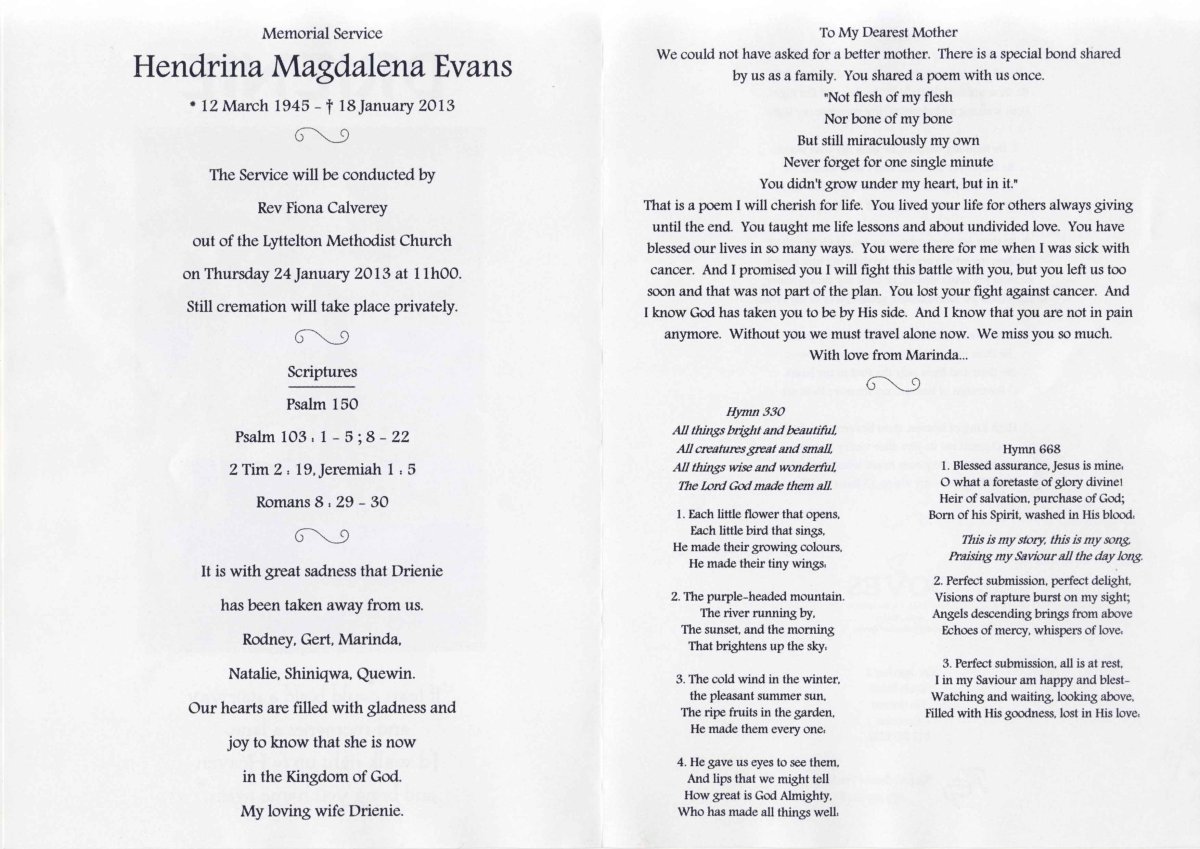 Memorial Service
Hendrina Magdalena Evans
* 12 March 1945 - † 18 January 2013
The Service will be conducted by
Rev Fiona Calverey
out of the Lyttelton Methodist Church
on Thursday 24 January 2013 at 11h00.
Still cremation will take place privately.
Scriptures
Psalm 150
Psalm 103 : 1 - 5 ; 8 - 22
2 Tim 2 : 19, Jeremiah 1 : 5
Romans 8 : 29 - 30
It is with great sadness that Drienie
has been taken away from us.
Rodney, Gert, Marinda,
Natalie, Shiniqwa, Quewin.
Our hearts are filled with gladness and
joy to know that she is now
in the Kingdom of God.
My loving wife Drienie.
To My Dearest Mother
We could not have asked for a better mother. There is a special bond shared
by us as a family. You shared a poem with us once.
"Not flesh of my flesh
Nor bone of my bone
But still miraculously my own
Never forget for one single minute
You didn't grow under my heart, but in it."
That is a poem I will cherish for life. You lived your life for others always giving
until the end. You taught me life lessons and about undivided love. You have
blessed our lives in so many ways. You were there for me when I was sick with
cancer. And I promised you I will fight this battle with you, but you left us too
soon and that was not part of the plan. You lost your fight against cancer. And
I know God has taken you to be by His side. And I know that you are not in pain
anymore. Without you we must travel alone now. We miss you so much.
With love from Marinda...
Hymn 330
All things bright and beautiful,
All creatures great and small,
All things wise and wonderful,
The Lord God made them all.
1. Each little flower that opens,
Each little bird that sings,
He made their growing colours,
He made their tiny wings:
2. The purple-headed mountain.
The river running by,
The sunset, and the morning
That brightens up the sky:
3. The cold wind in the winter,
the pleasant summer sun,
The ripe fruits in the garden,
He made them every one:
4. He gave us eyes to see them,
And lips that we might tell
How great is God Almighty,
Who has made all things well:
Hymn 668
1. Blessed assurance, Jesus is mine:
O what a foretaste of glory divine!
Heir of salvation, purchase of God;
Born of his Spirit, washed in His blood:
This is my story, this is my song,
Praising my Saviour all the day long.
2. Perfect submission, perfect delight,
Visions of rapture burst on my sight;
Angels descending brings from above
Echoes of mercy, whispers of love:
3. Perfect submission, all is at rest,
I in my Saviour am happy and blest-
Watching and waiting, looking above,
Filled with His goodness, lost in His love: